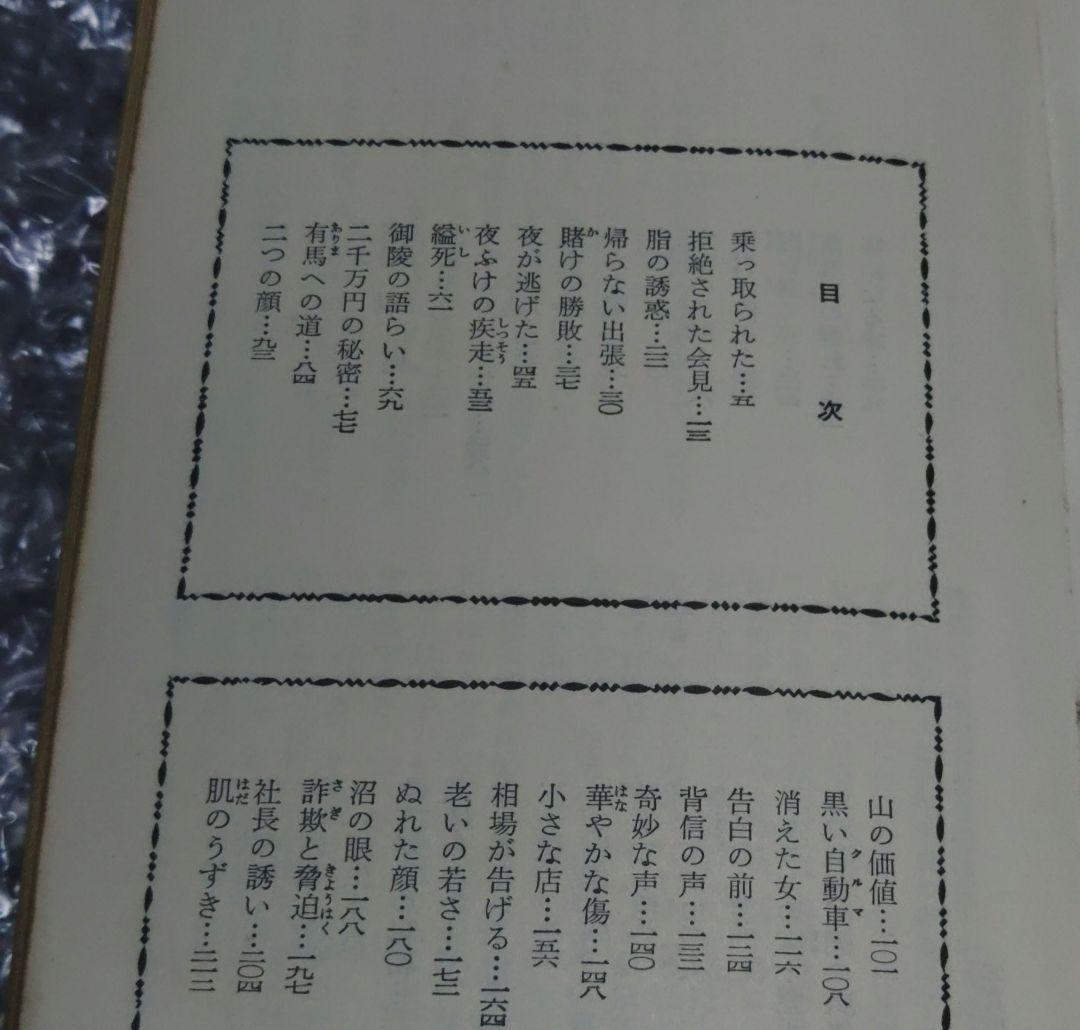 目次
乗っ取られた…五
拒絶された会見…一三
脂の誘惑…二二
帰らない出張…三〇
賭けの勝敗…三七
夜が逃げた…四五
夜ふけの疾走…五三
縊死…六一
御陵の語らい…六九
二千万円の秘密…七七
有馬への道…八四
二つの顔…九三
山の価値…一〇一
黒い自動車…一〇八
消えた女…一一六
告白の前…一二四
背信の声…一三二
奇妙な声…一四〇
華やかな傷…一四八
小さな店…一五六
相場が告げる…一六四
老いの若さ…一七二
ぬれた顔…一八〇
沼の眼…一八八
詐欺と脅迫…一九七
社長の誘い…二〇四
肌のうずき…二一二